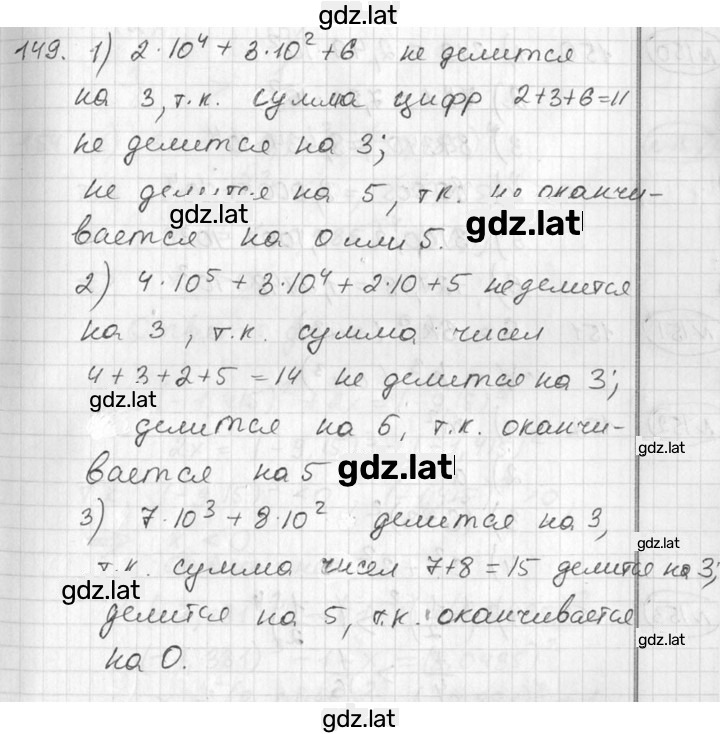 gdz.lat
149. 1) 2·10⁴ + 3·10² + 6 не делится
на 3, т.к. сумма цифр 2+3+6=11
не делится на 3;
не делится на 5, т.к. не оканчи-
gdz.lat
gdz.lat
вается на 0 или 5.
2) 4·10⁵ + 3·10⁴ + 2·10 + 5 не делится
на 3, т.к. сумма чисел
4+3+2+5 = 14 не делится на 3;
gdz.lat
делится на 5, т.к. оканчи-
gdz.lat
вается на 5
gdz.lat
3) 7·10³ + 8·10² делится на 3,
gdz.lat
т.к. сумма чисел 7+8=15 делится на 3;
gdz.lat
делится на 5, т.к. оканчивается
gdz.lat
на 0.
gdz.lat